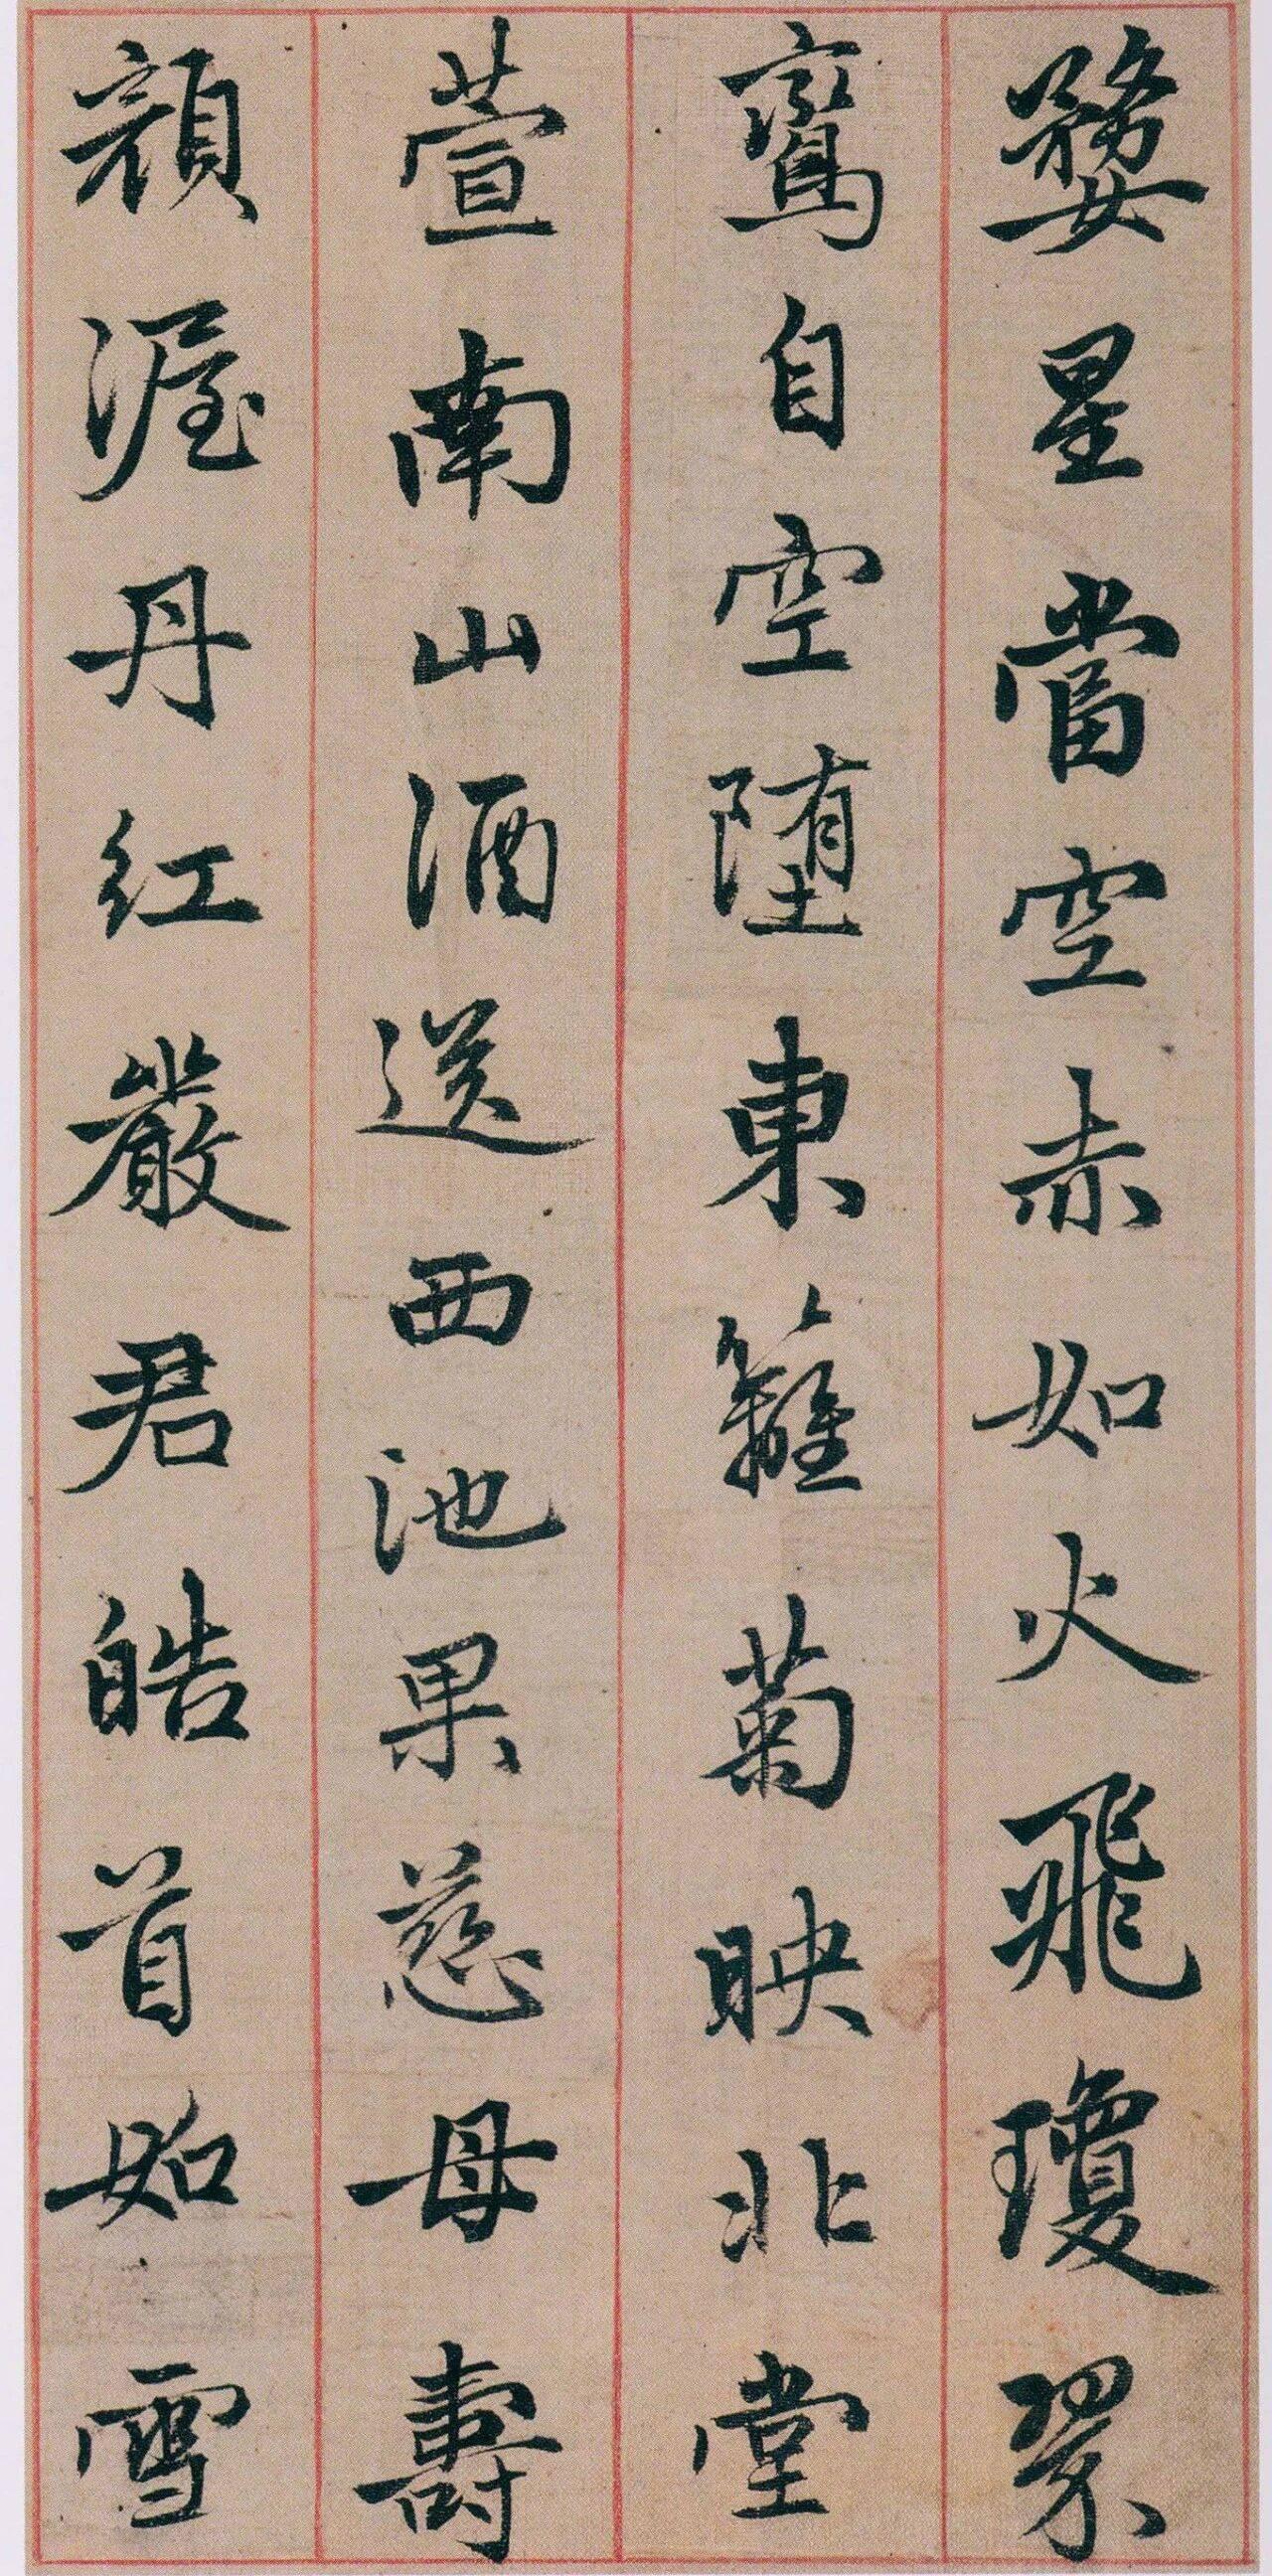 婺星當空赤如火飛瓊翠
鸞自空堕東籬菊映北堂
萱南山酒送西池果慈母壽
顔渥丹紅嚴君皓首如雪